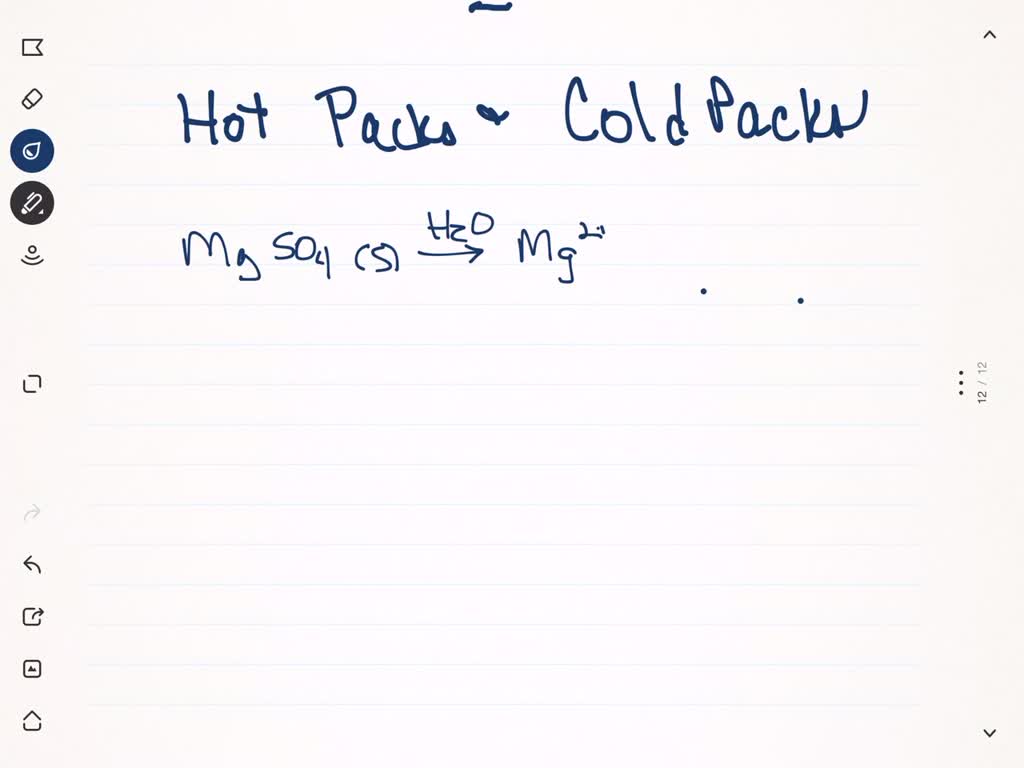 Hot Packs & Cold Packs
MgSO4 (s) H2O → Mg2+
12 / 12